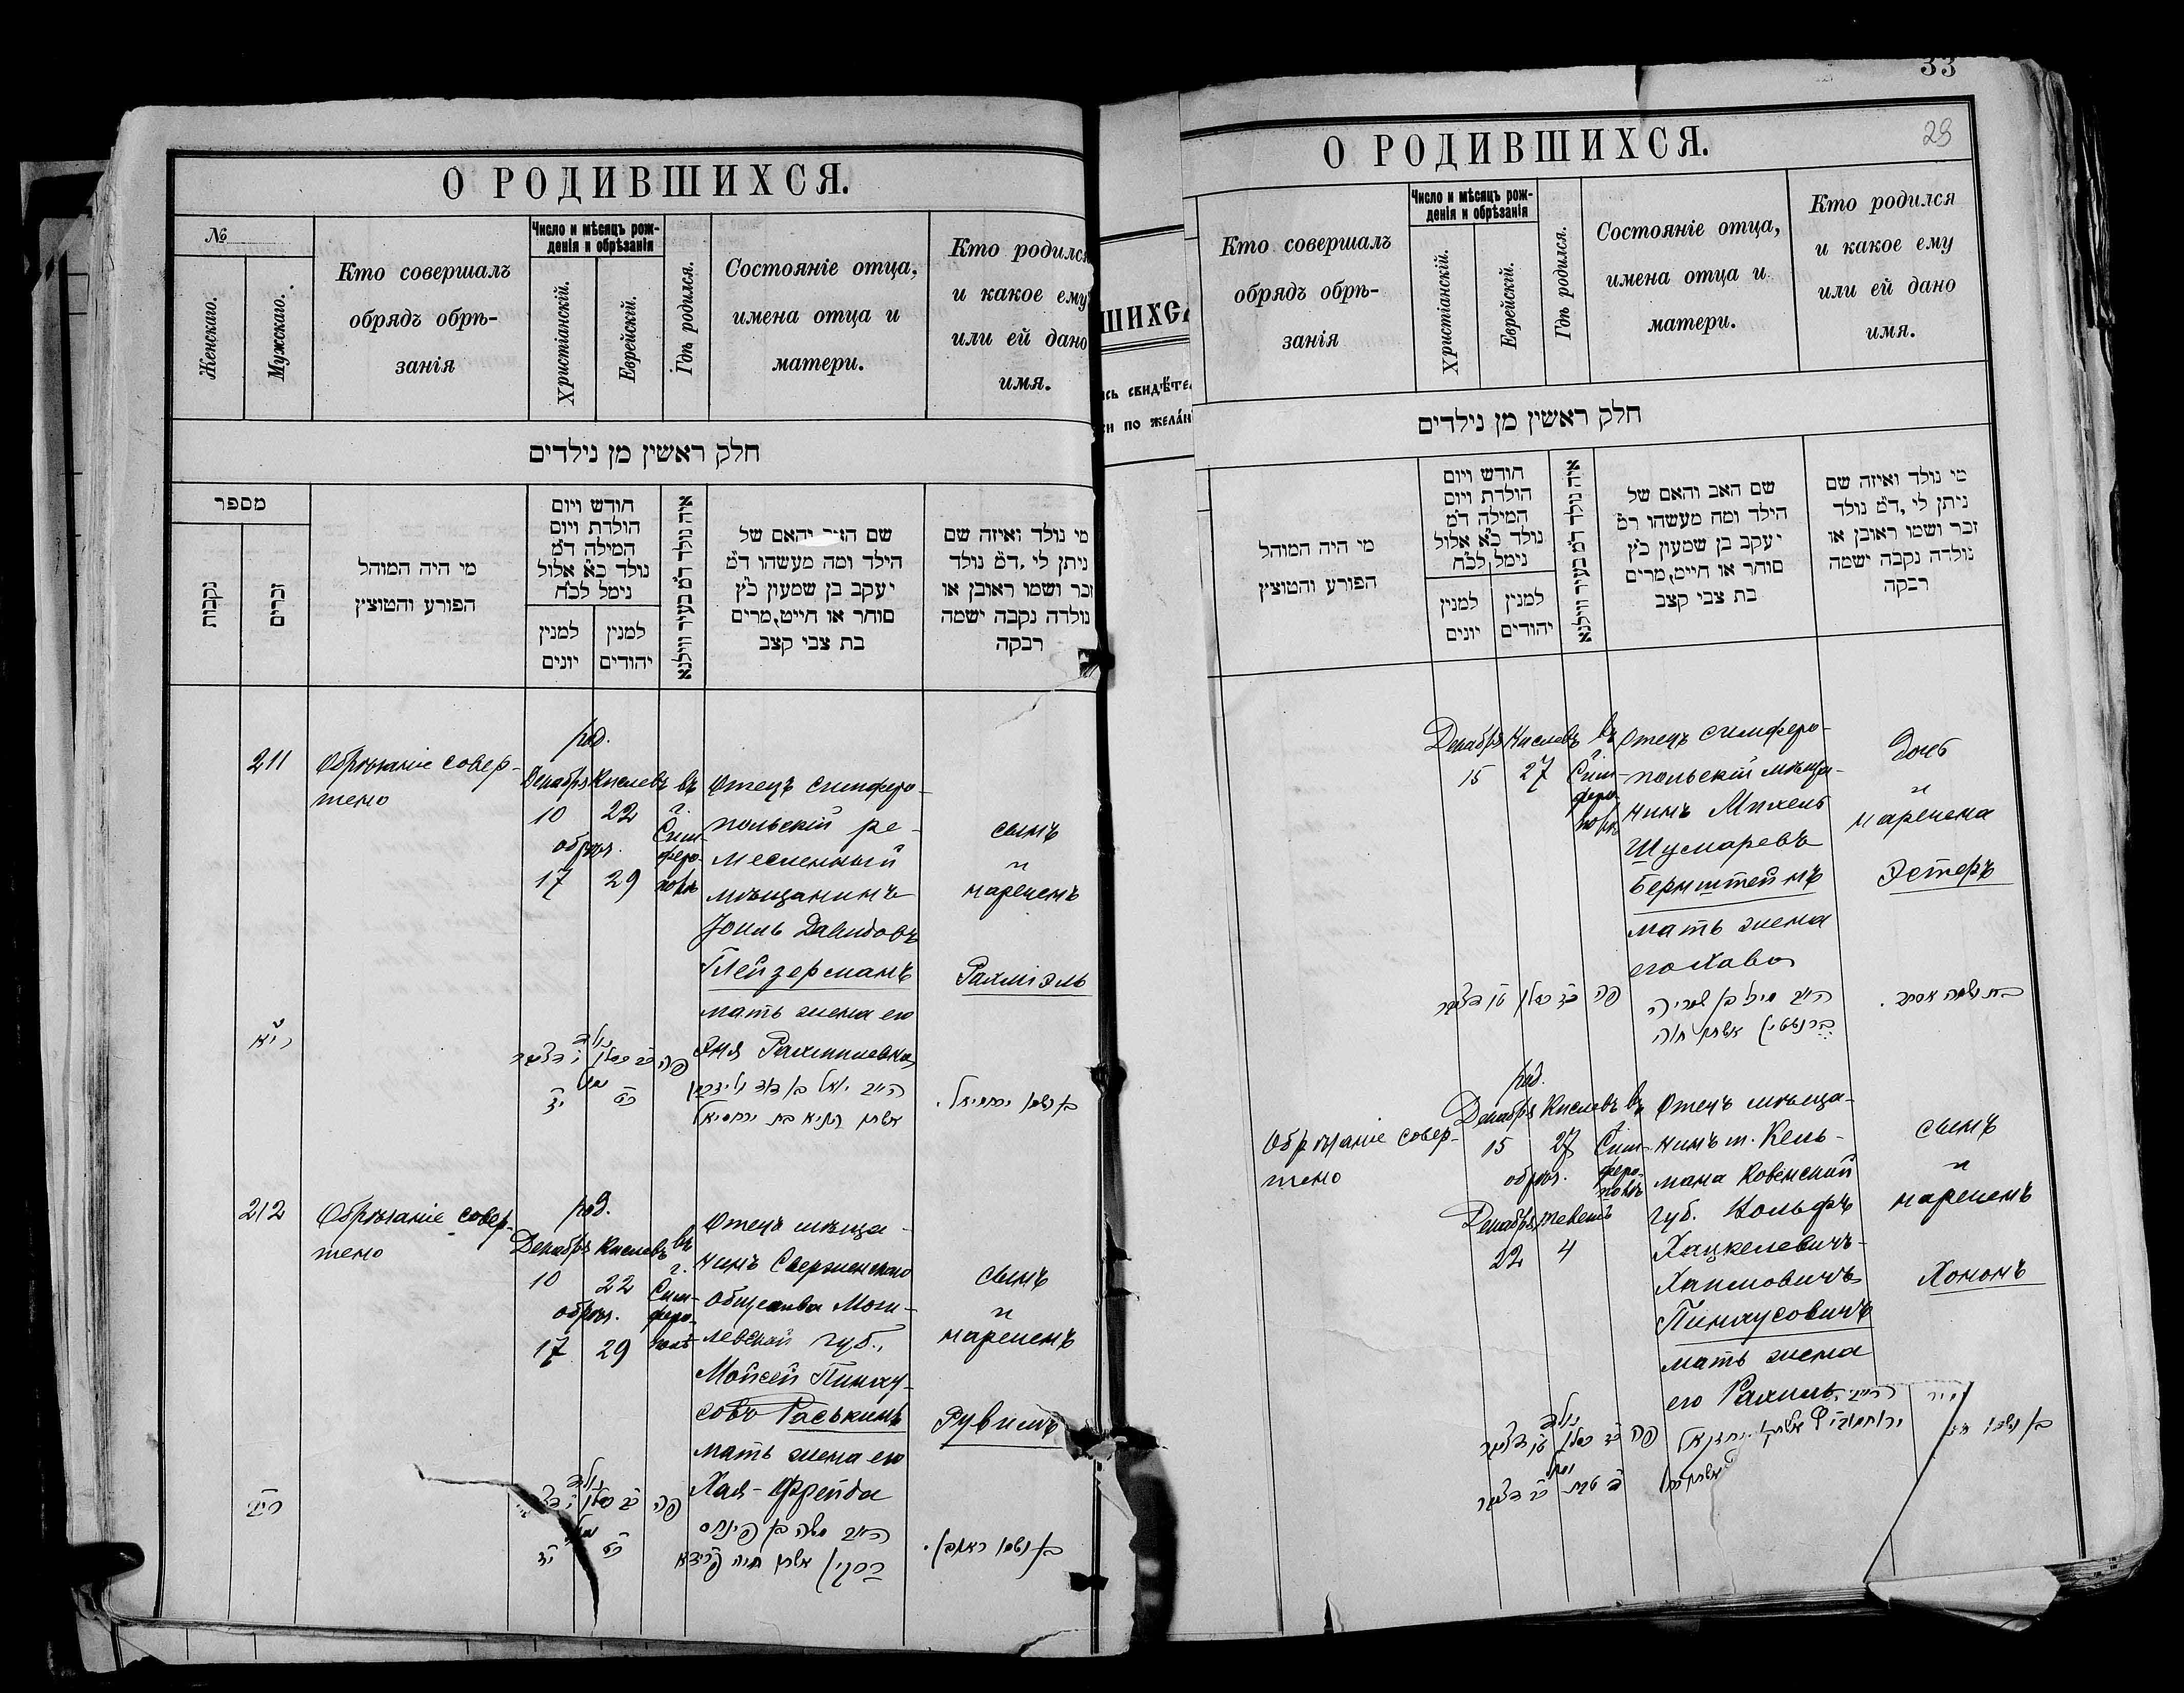 О РОДИВШИХСЯ.
№
Женскаго.
Мужскаго.
Кто совершалъ
обрядъ обрѣ-
занія
Число и мѣсяцъ рож-
денія и обрѣзанія
Христіанскій.
Еврейскій.
Гдѣ родился.
Состояніе отца,
имена отца и
матери.
Кто родился
и какое ему
или ей дано
имя.
חלק ראשין מן נילדים
מספר
נקבות
זכרים
מי היה המוהל
הפורע והמוצץ
חודש ויום
הולדת ויום
המילה ד״מ
נולד כ״א אלול
נימל לכ״ח
למנין
יונים
למנין
יהודים
איה נולד ד״מ בעיר ווילנא
שם האב והאם של
הילד ומה מעשהו ד״מ
יעקב בן שמעון כ״ץ
סוחר או חייט, מרים
בת צבי קצב
מי נולד ואיזה שם
ניתן לי, ד״מ נולד
זכר ושמו ראובן או
נולדה נקבה ישמה
רבקה
211
Обрѣзаніе совер-
шено
род.
Декабря Кислевъ
10 22
обрѣз.
17 29
въ
г.
Сим-
феро-
полѣ
Отецъ симферо-
польскій ре-
месленный
мѣщанинъ
Іоиль Давидовъ
Глейзерманъ
мать жена его
Эня Рахмилевна
сынъ
и
нареченъ
Рахміэль
רי״א
נולד
כ״ב כסלו י׳ דצמבר
נימול
כ״ט י״ז
פה
ה״ה יואל בן דוד גליזרמן
אשתו הניא בת ירחמיאל
בן ושמו ירחמיאל.
212
Обрѣзаніе совер-
шено
род.
Декабря Кислевъ
10 22
обрѣз.
17 29
въ
г.
Сим-
феро-
полѣ
Отецъ мѣща-
нинъ Сверженскаго
Общества Моги-
левской губ.,
Мойсей Пинху-
совъ Раськинъ
мать жена его
Хая-Фрейда
сынъ
и
нареченъ
Рувимъ
רי״ב
נולד
כ״ב כסלו י׳
נימול
כ״ט י״ז
פה
ה״ה משה בן פינחס
רסקין אשתו חיה פריידא
בן ושמו ראובן.
ШИХСЯ
сь свидѣте
и по желан
33
29
О РОДИВШИХСЯ.
Кто совершалъ
обрядъ обрѣ-
занія
Число и мѣсяцъ рож-
денія и обрѣзанія
Христіанскій.
Еврейскій.
Гдѣ родился.
Состояніе отца,
имена отца и
матери.
Кто родился
и какое ему
или ей дано
имя.
חלק ראשין מן נילדים
מי היה המוהל
הפורע והמוצץ
חודש ויום
הולדת ויום
המילה ד״מ
נולד כ״א אלול
נימל לכ״ח
למנין
יונים
למנין
יהודים
איה נולד ד״מ בעיר ווילנא
שם האב והאם של
הילד ומה מעשהו ד״מ
יעקב בן שמעון כ״ץ
סוחר או חייט, מרים
בת צבי קצב
מי נולד ואיזה שם
ניתן לי, ד״מ נולד
זכר ושמו ראובן או
נולדה נקבה ישמה
רבקה
Декабря Кислевъ
15 27
въ
г.
Сим-
феро-
полѣ
Отецъ симферо-
польскій мѣща-
нинъ Михель
Шумаревъ
Бернштейнъ
мать жена
его Хава
дочь
и
наречена
Эстеръ
כ״ז כסלו ט״ו דצמבר
פה
ברנשטיין אשתו חוה
בת ושמה אסתר.
Обрѣзаніе совер-
шено
род.
Декабря Кислевъ
15 27
обрѣз.
Декабря Теветъ
22 4
въ
г.
Сим-
феро-
полѣ
Отецъ мѣща-
нинъ м. Кель-
мана Ковенской
губ. Вольфъ
Хацкелевичъ-
Хаимовичъ
Пинхусовичъ
мать жена
его Рахиль
сынъ
и
нареченъ
Хононъ
נולד
כ״ז כסלו ט״ו דצמבר
נימול
ד׳ טבת כ״ב דצמבר
פה
בן ושמו